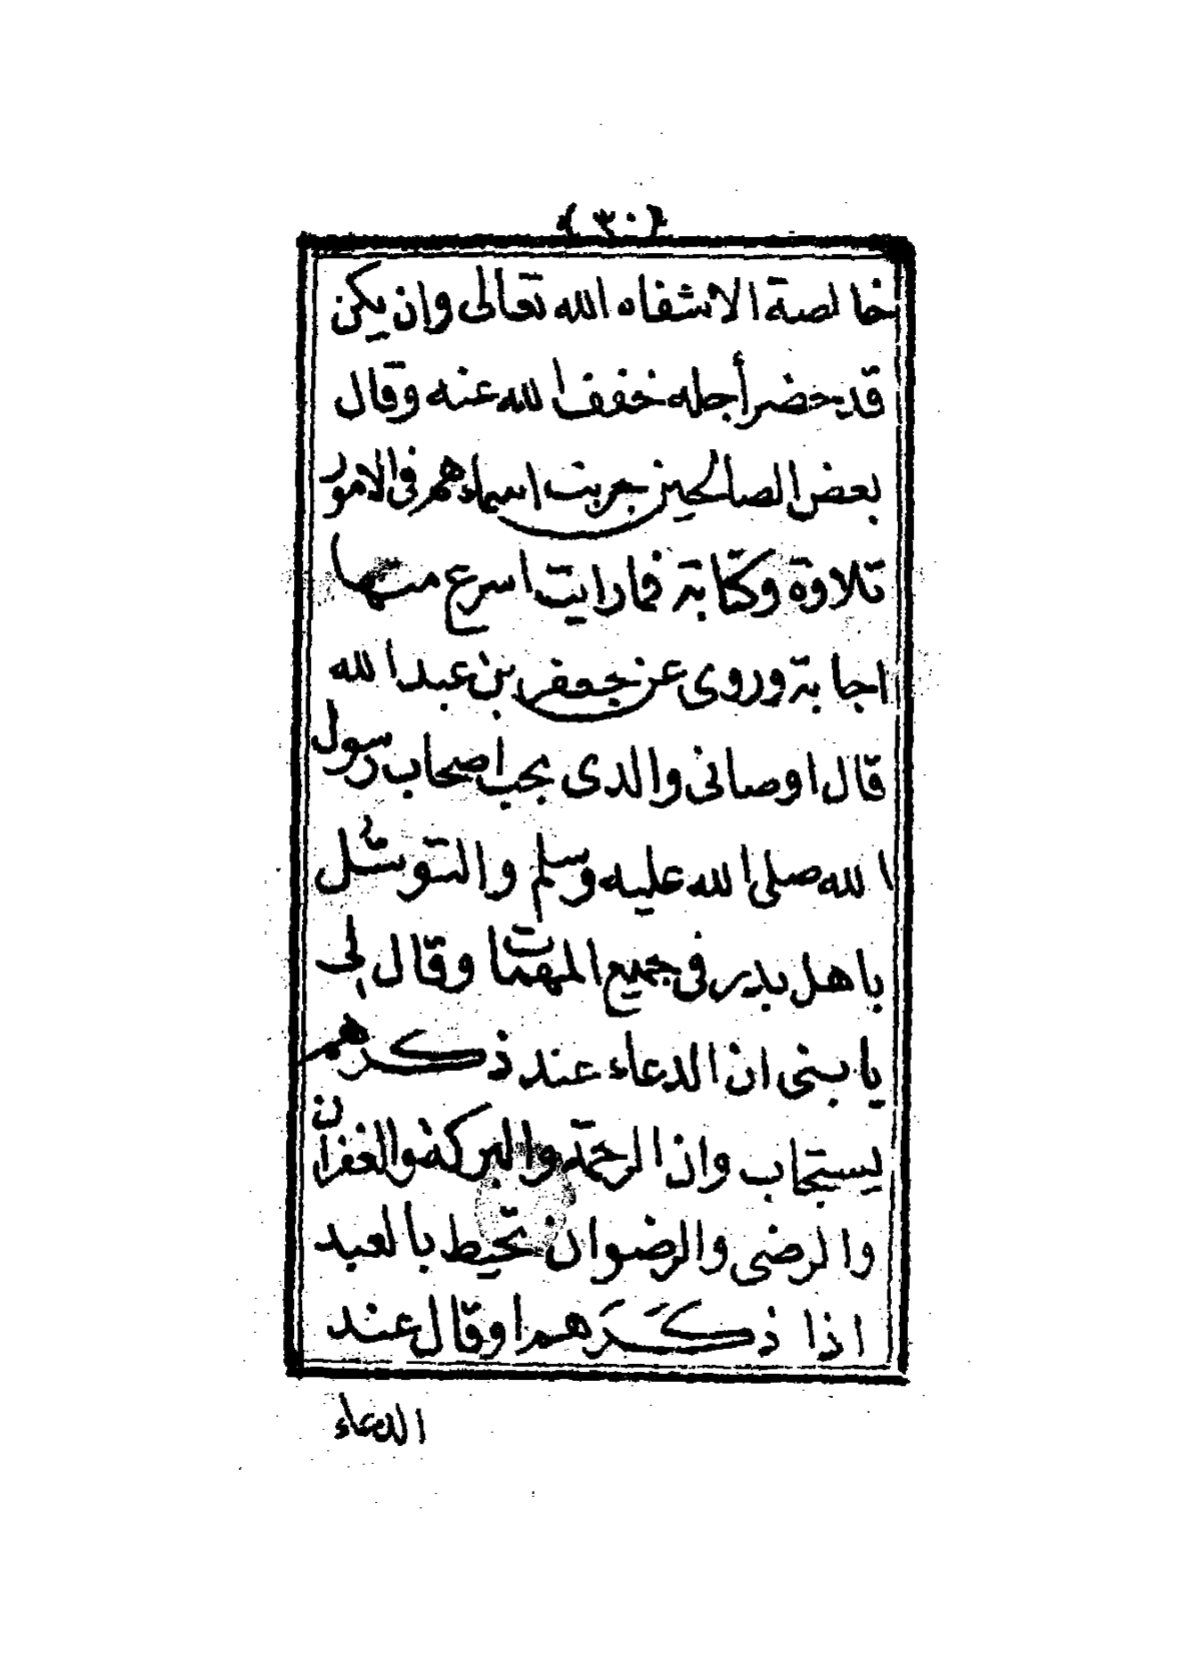 ﴿٣٠﴾
خالصة الا شفاه الله تعالى وان يكن
قد حضر أجله خفف الله عنه وقال
بعض الصالحين جربت اسماءهم فى الامور
تلاوة وكتابة فما رايت اسرع منها
اجابة وروى عن جعفر بن عبد الله
قال اوصانى والدى بحب اصحاب رسول
الله صلى الله عليه وسلم والتوسّل
باهل بدر فى جميع المهمات وقال لى
يا بنى ان الدعاء عند ذكرهم
يستجاب وان الرحمة والبركة والغفران
والرضى والرضوان تحيط بالعبد
اذا ذكَرَهم اوقال عند
الدعاء